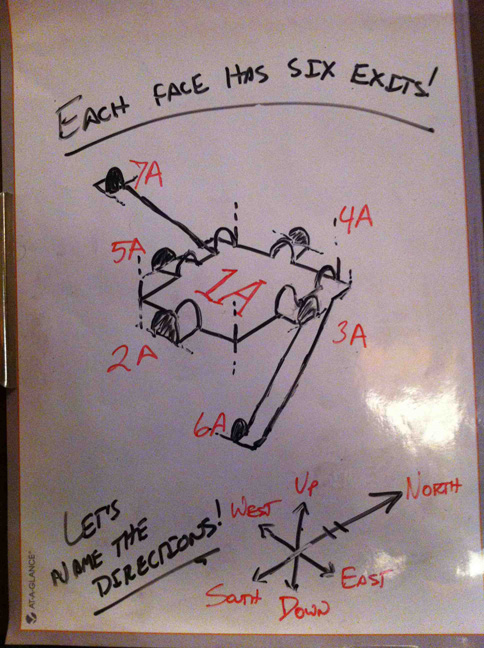 EACH FACE HAS SIX EXITS!
7A
4A
5A
1A
2A
3A
6A
LET'S
NAME THE
DIRECTIONS!
UP
NORTH
WEST
EAST
SOUTH
DOWN
AT-A-GLANCE